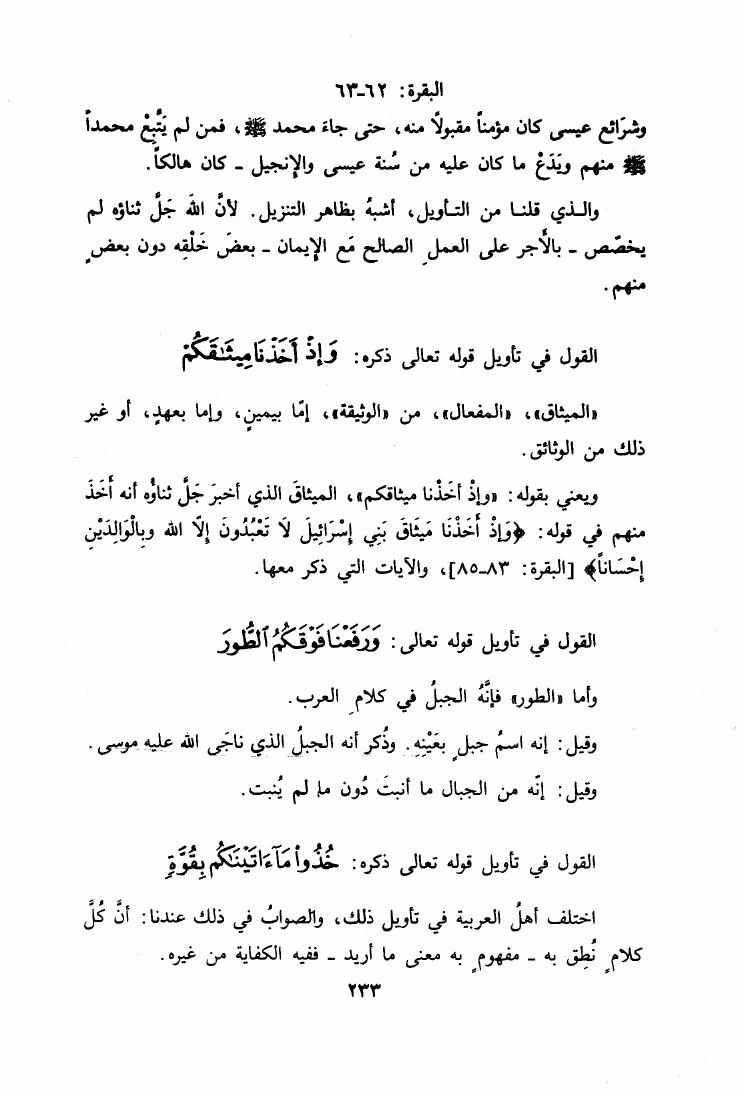 البقرة: ٦٢ـ٦٣
وشرَائع عيسى كان مؤمناً مقبولًا منه، حتى جاءَ محمد ﷺ، فمن لم يَتَّبِعْ محمداً
ﷺ منهم ويَدَعْ ما كان عليه من سُنة عيسى والإنجيل ـ كان هالكاً.
والـذي قلنـا من التـأويل، أشبهُ بظاهر التنزيل. لأنَّ اللهَ جَلَّ ثناؤه لم
يخصّص ـ بالأَجر على العملِ الصالح مَع الإيمان ـ بعضَ خَلْقِه دون بعضٍ
منهم.
القول في تأويل قوله تعالى ذكره: وَإِذْ أَخَذْنَا مِيثَٰقَكُمْ
«الميثاق»، «المفعال»، من «الوثيقة»، إمّا بيمينٍ، وإما بعهدٍ، أو غير
ذلك من الوثائق.
ويعني بقوله: «وإذْ أخَذْنا ميثاقكم»، الميثاقَ الذي أخبرَ جَلَّ ثناؤُه أنه أَخَذَ
منهم في قوله: ﴿وَإِذْ أَخَذْنَا مَيثَاقَ بَنِي إِسْرَائِيلَ لَا تَعْبُدُونَ إِلّا الله وبِالْوَالِدَيْنِ
إِحْسَاناً﴾ [البقرة: ٨٣ـ٨٥]، والآيات التي ذكر معها.
القول في تأويل قوله تعالى: وَرَفَعْنَا فَوْقَكُمُ ٱلطُّورَ
وأما «الطور» فإنَّهُ الجبلُ في كلامِ العرب.
وقيل: إنه اسمُ جبلٍ بعَيْنِهِ. وذُكر أنه الجبلُ الذي ناجَى الله عليه موسى.
وقيل: إنّه من الجبال ما أنبتَ دُون ما لم يُنبت.
القول في تأويل قوله تعالى ذكره: خُذُواْ مَآ ءَاتَيْنَٰكُم بِقُوَّةٍ
اختلف أهلُ العربية في تأويل ذلك، والصوابُ في ذلك عندنا: أنَّ كُلَّ
كلامٍ نُطِق به ـ مفهومٍ به معنى ما أريد ـ ففيه الكفاية من غيره.
٢٣٣